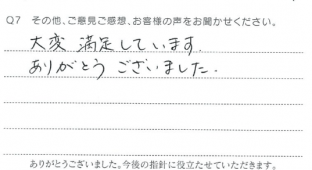 Q7 その他、ご意見ご感想、お客様の声をお聞かせください。
大変 満足しています.
ありがとう ございました.
ありがとうございました。今後の指針に役立たせていただきます。